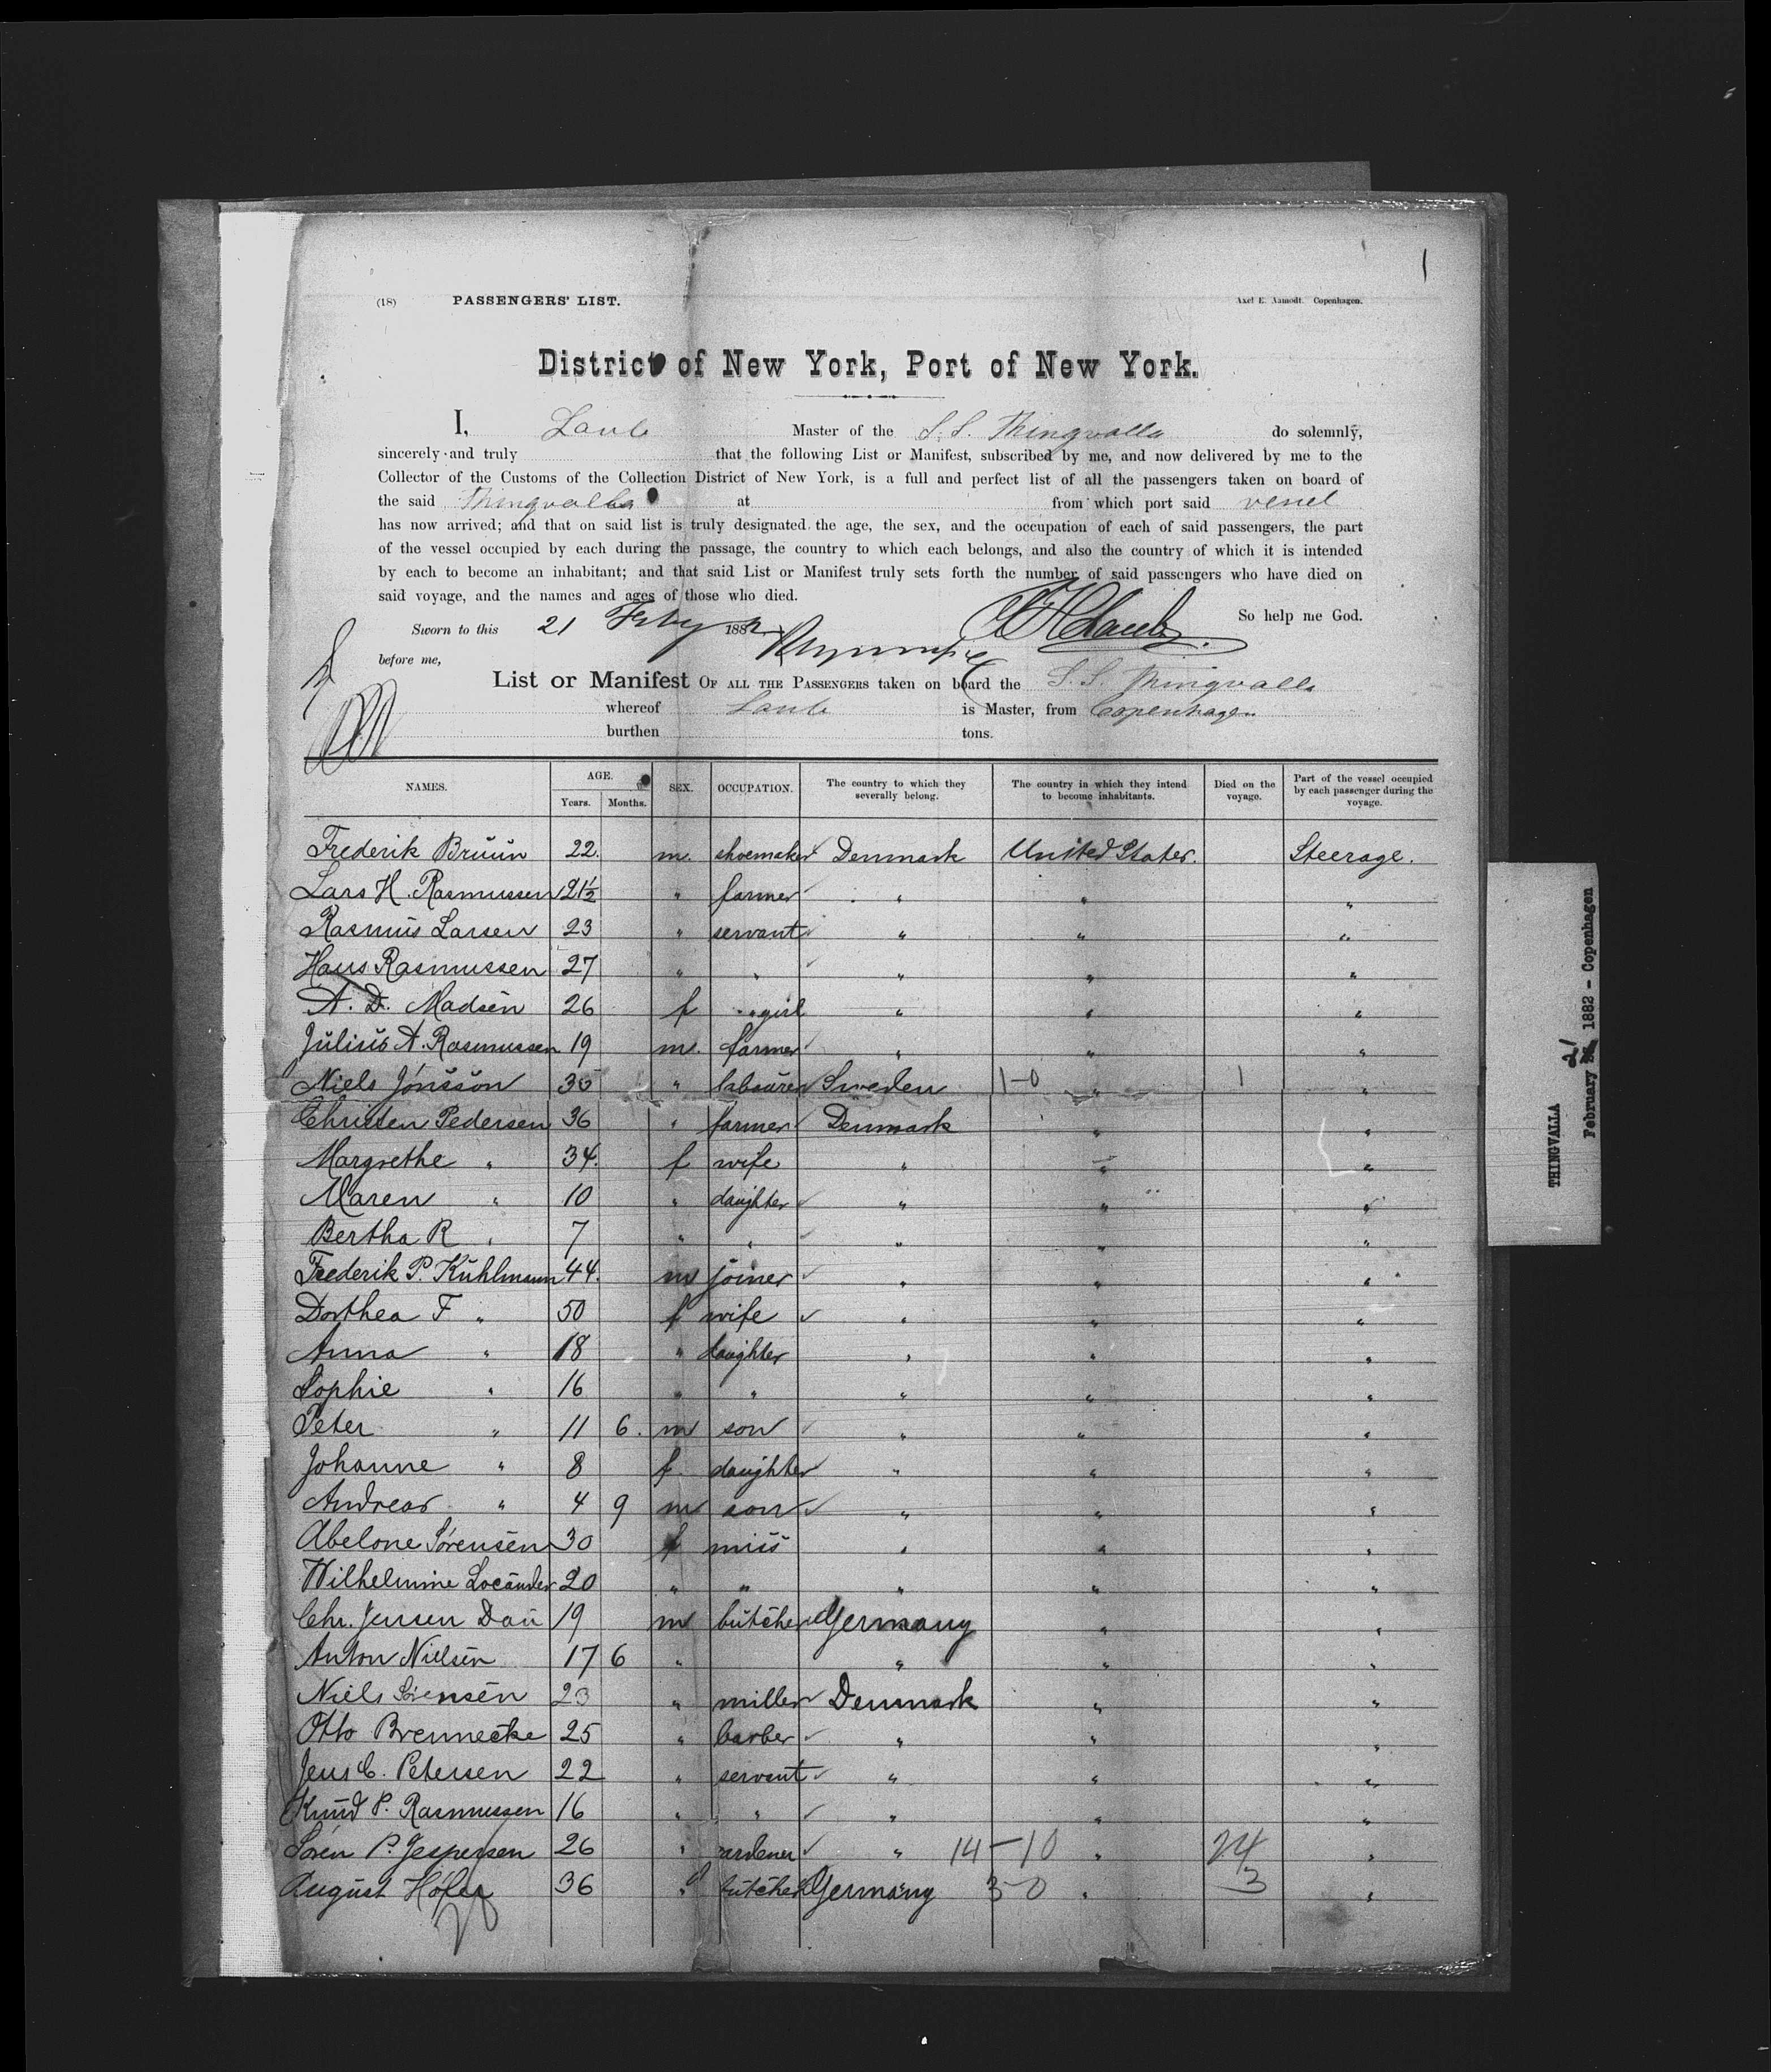 1
(18) PASSENGERS' LIST. Axel E. Aamodt. Copenhagen.
District of New York, Port of New York.
I, Laub Master of the S.S. Thingvalla do solemnly,
sincerely and truly that the following List or Manifest, subscribed by me, and now delivered by me to the
Collector of the Customs of the Collection District of New York, is a full and perfect list of all the passengers taken on board of
the said Thingvalla at from which port said vessel
has now arrived; and that on said list is truly designated the age, the sex, and the occupation of each of said passengers, the part
of the vessel occupied by each during the passage, the country to which each belongs, and also the country of which it is intended
by each to become an inhabitant; and that said List or Manifest truly sets forth the number of said passengers who have died on
said voyage, and the names and ages of those who died.
So help me God.
Sworn to this 21 Feby 1882
before me,
List or Manifest OF ALL THE PASSENGERS taken on board the S.S. Thingvalla
whereof Laub is Master, from Copenhagen
burthen tons.
NAMES. AGE. Years. Months. SEX. OCCUPATION. The country to which they severally belong. The country in which they intend to become inhabitants. Died on the voyage. Part of the vessel occupied by each passenger during the voyage.
Frederik Bruun 22. m. shoemaker Denmark United States. Steerage.
Lars H. Rasmussen 21½ " farmer " " "
Rasmus Larsen 23 " servant " " "
Hans Rasmussen 27 " " " " "
A. D. Madsen 26 f " girl " " "
Julius A. Rasmussen 19 m. farmer " " "
Niels Jönsson 35 " labourer Sweden 1-0 " 1 "
Christen Pedersen 36 " farmer Denmark " "
Margrethe " 34. f wife " " "
Maren " 10 " daughter " " "
Bertha R " 7 " " " " "
Frederik P. Kuhlmann 44. m joiner " " "
Dorthea F " 50 f wife " " "
Anna " 18 " daughter " " "
Sophie " 16 " " " " "
Peter " 11 6. m son " " "
Johanne " 8 f. daughter " " "
Andreas " 4 9 m son " " "
Abelone Sørensen 30 f miss " " "
Wilhelmine Locander 20 " " " " "
Chr. Jensen Dau 19 m butcher Germany " "
Anton Nielsen 17 6 " " " "
Niels Sørensen 23 " miller Denmark " "
Otto Brennecke 25 " barber " " "
Jens C. Petersen 22 " servant " " "
Knud P. Rasmussen 16 " " " " "
Søren P. Jespersen 26 " ardener " 14-10 " 24 "
August Höfer 36 " butcher Germany 3-0 " 3 "
THINGVALLA
February 21 1882 - Copenhagen